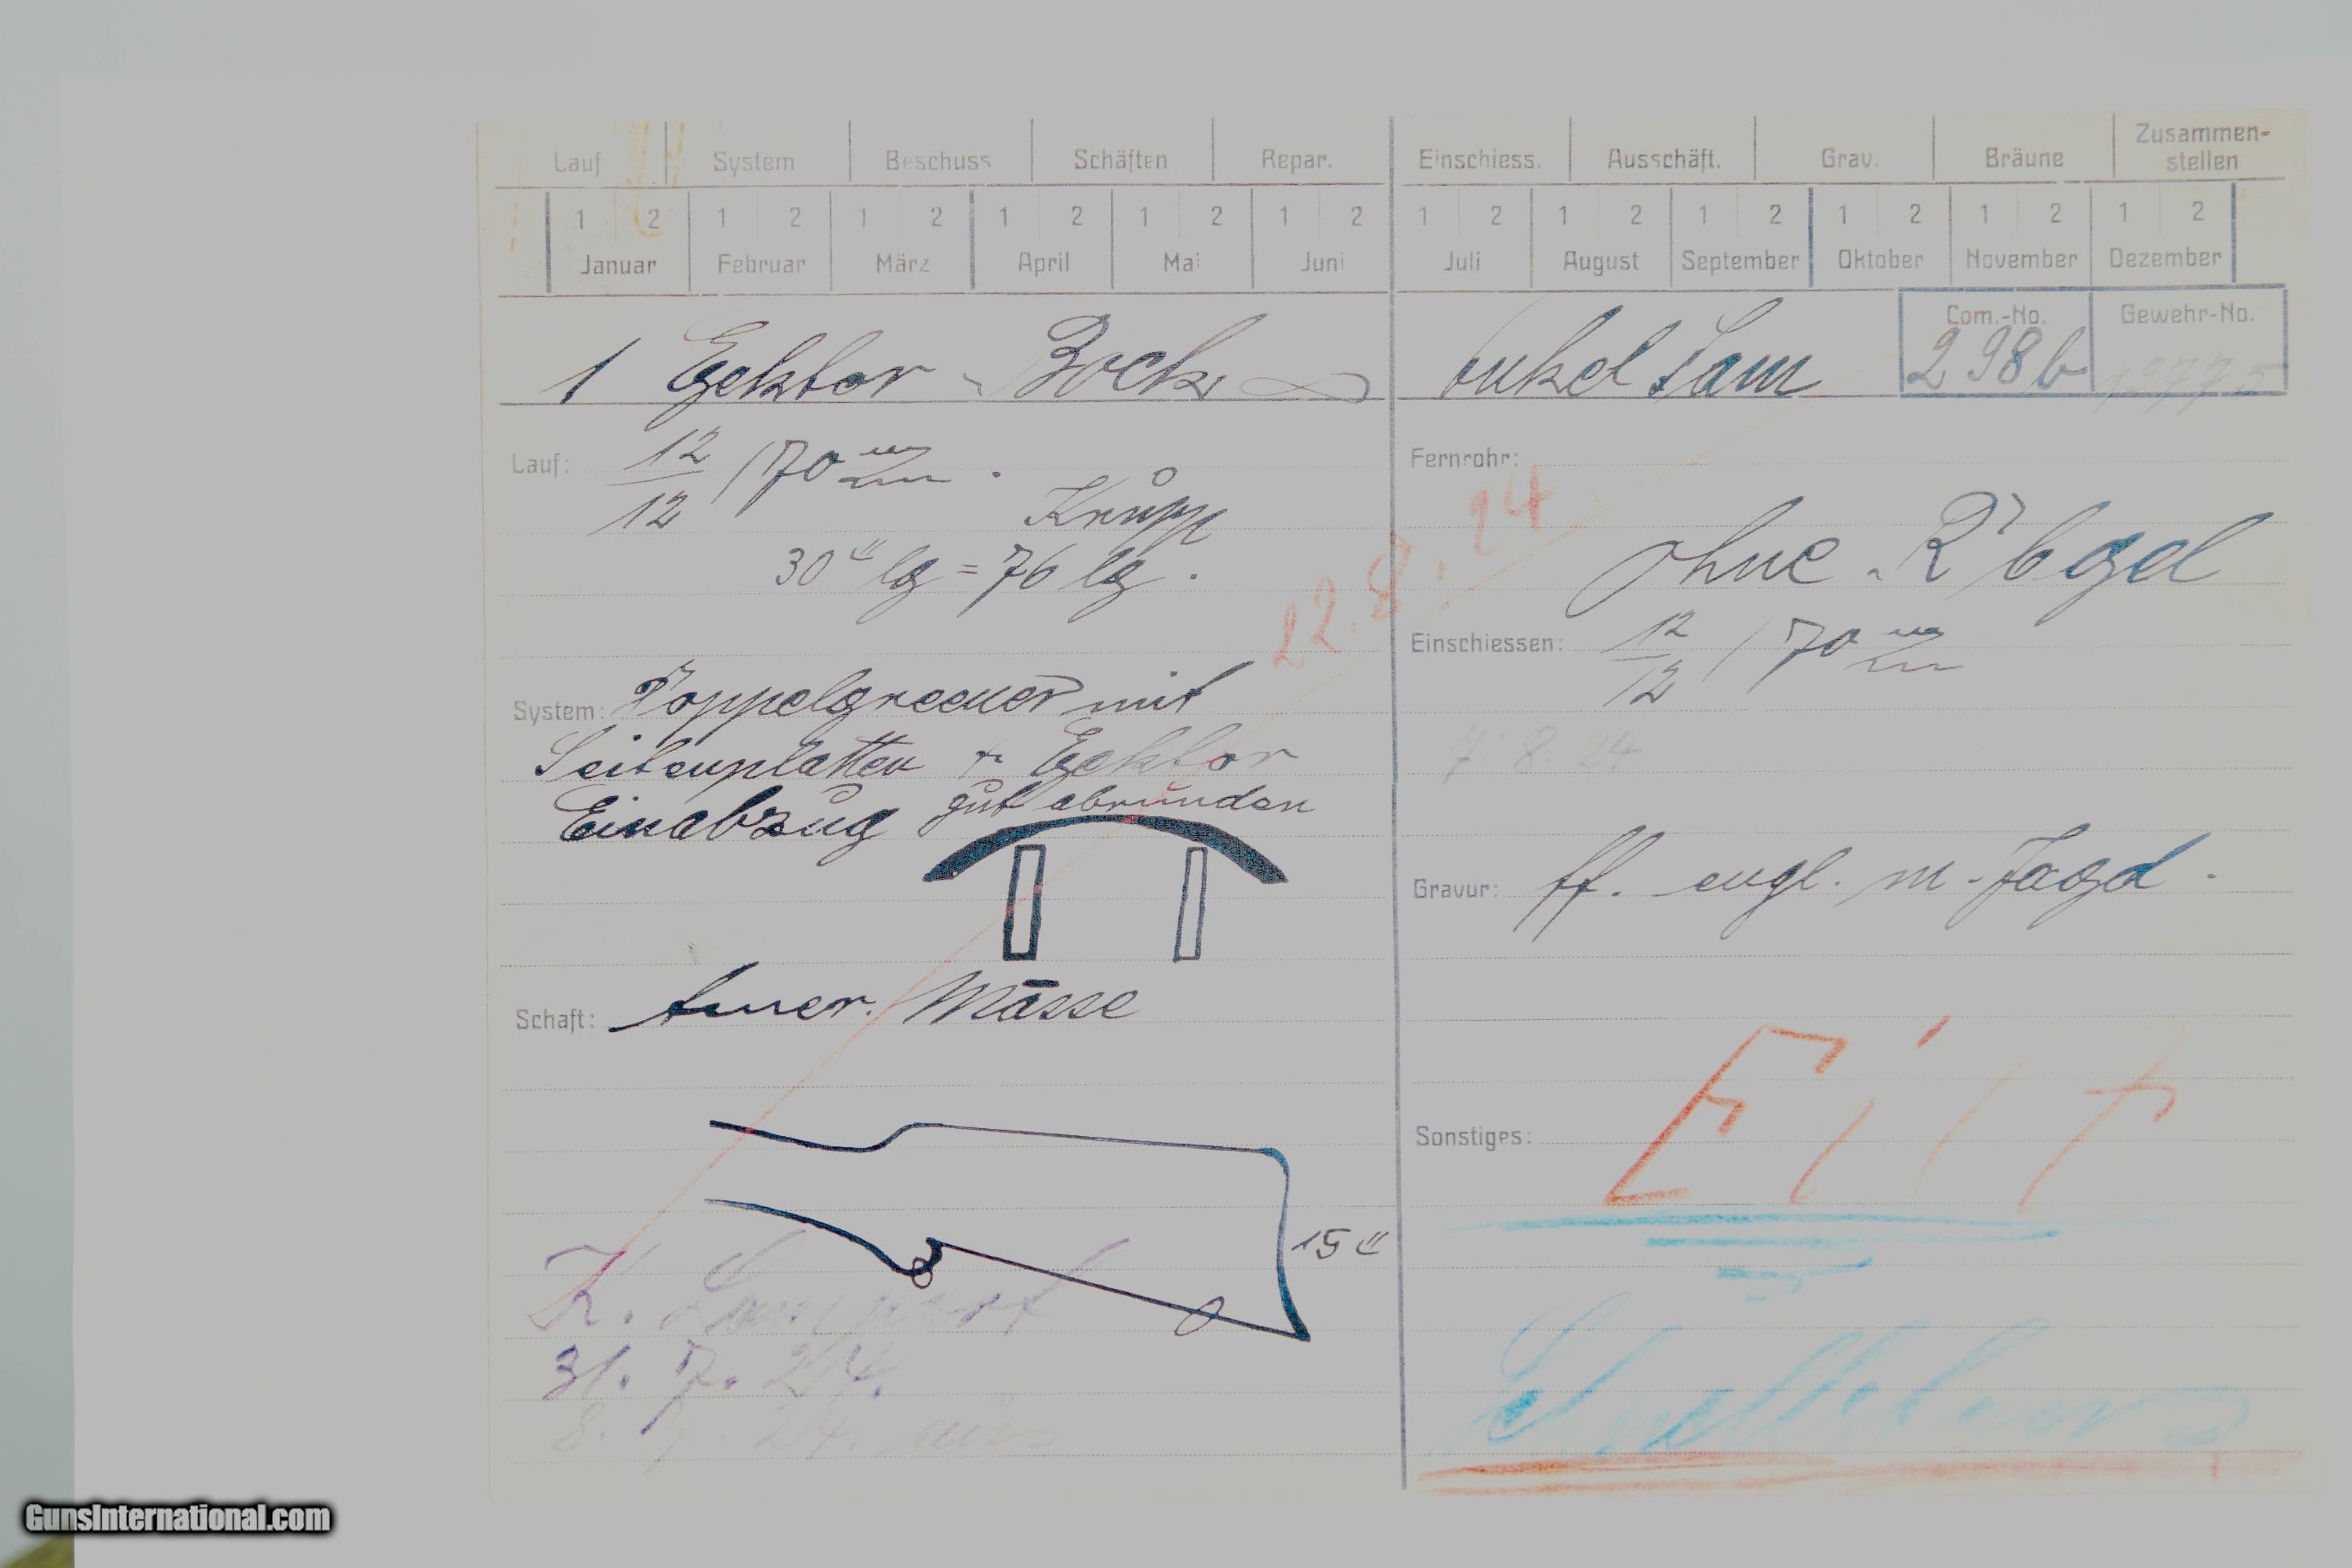 Lauf System Beschuss Schäften Repar. Einschiess. Ausschäft. Grav. Bräune Zusammen-
stellen
1 2 1 2 1 2 1 2 1 2 1 2 1 2 1 2 1 2 1 2 1 2 1 2
Januar Februar März April Mai Juni Juli August September Oktober November Dezember
1 Ejektor - Bock onkel Sam
Com.-No.
298b
Gewehr-No.
Lauf: 12/12 /70 m/m.
Krupp
30" lg = 76 lg.
Fernrohr:
22.8.24
ohne
Einschiessen: 12/12 /70 m/m
7.8.24
System: Doppelgreener mit
Seitenplatten + Ejektor
Einabzug gut abrunden
Gravur: ff. engl. m. Jagd.
Schaft: Amer. Masse
15"
Sonstiges: Eilt
K.
31.7.24.
GunsInternational.com